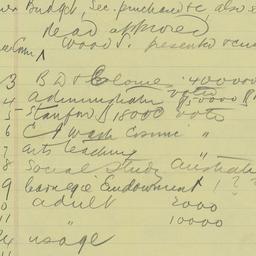 Budget, Sec. purchase etc, also
Read approved
Wood. presented
3 B D + 400000
4 Administration voted $50000
5 Stanford $18000 vote
6 C Wash "
7 Arts teaching
8 Social Study Australia
9 Carnegie Endowment ! ?
10 adult 2000
11 " 10000
usage